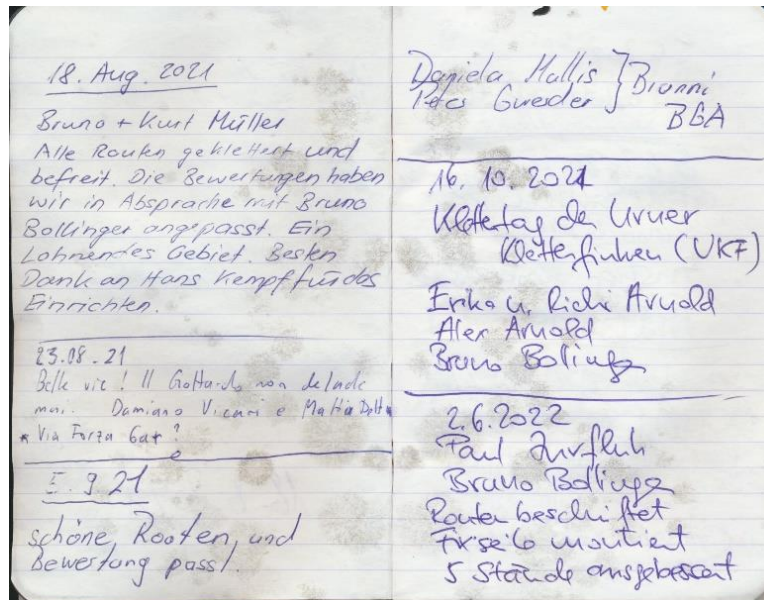 18. Aug. 2021
Bruno + Kurt Müller
Alle Routen geklettert und
befreit. Die Bewertungen haben
wir in Absprache mit Bruno
Bollinger angepasst. Ein
Lohnendes Gebiet. Besten
Dank an Hans Kempf für das
Einrichten.
23.08.21
Belle vie! Il Gottardo non delude
mai. Damiano e Mattia
* Via Forza 6a+?
9 21
schöne Rooten, und
Bewertung passt.
Daniela Mallis } Brunni
Peter BGA
16. 10. 2021
Klettertag der Urner
Kletterfinken (UKF)
Erika u. Richi Arnold
Alex Arnold
Bruno Bolinger
2.6.2022
Paul Zurfluh
Bruno Bollinger
Routen beschriftet
montiert
5 Stände ausgebessert